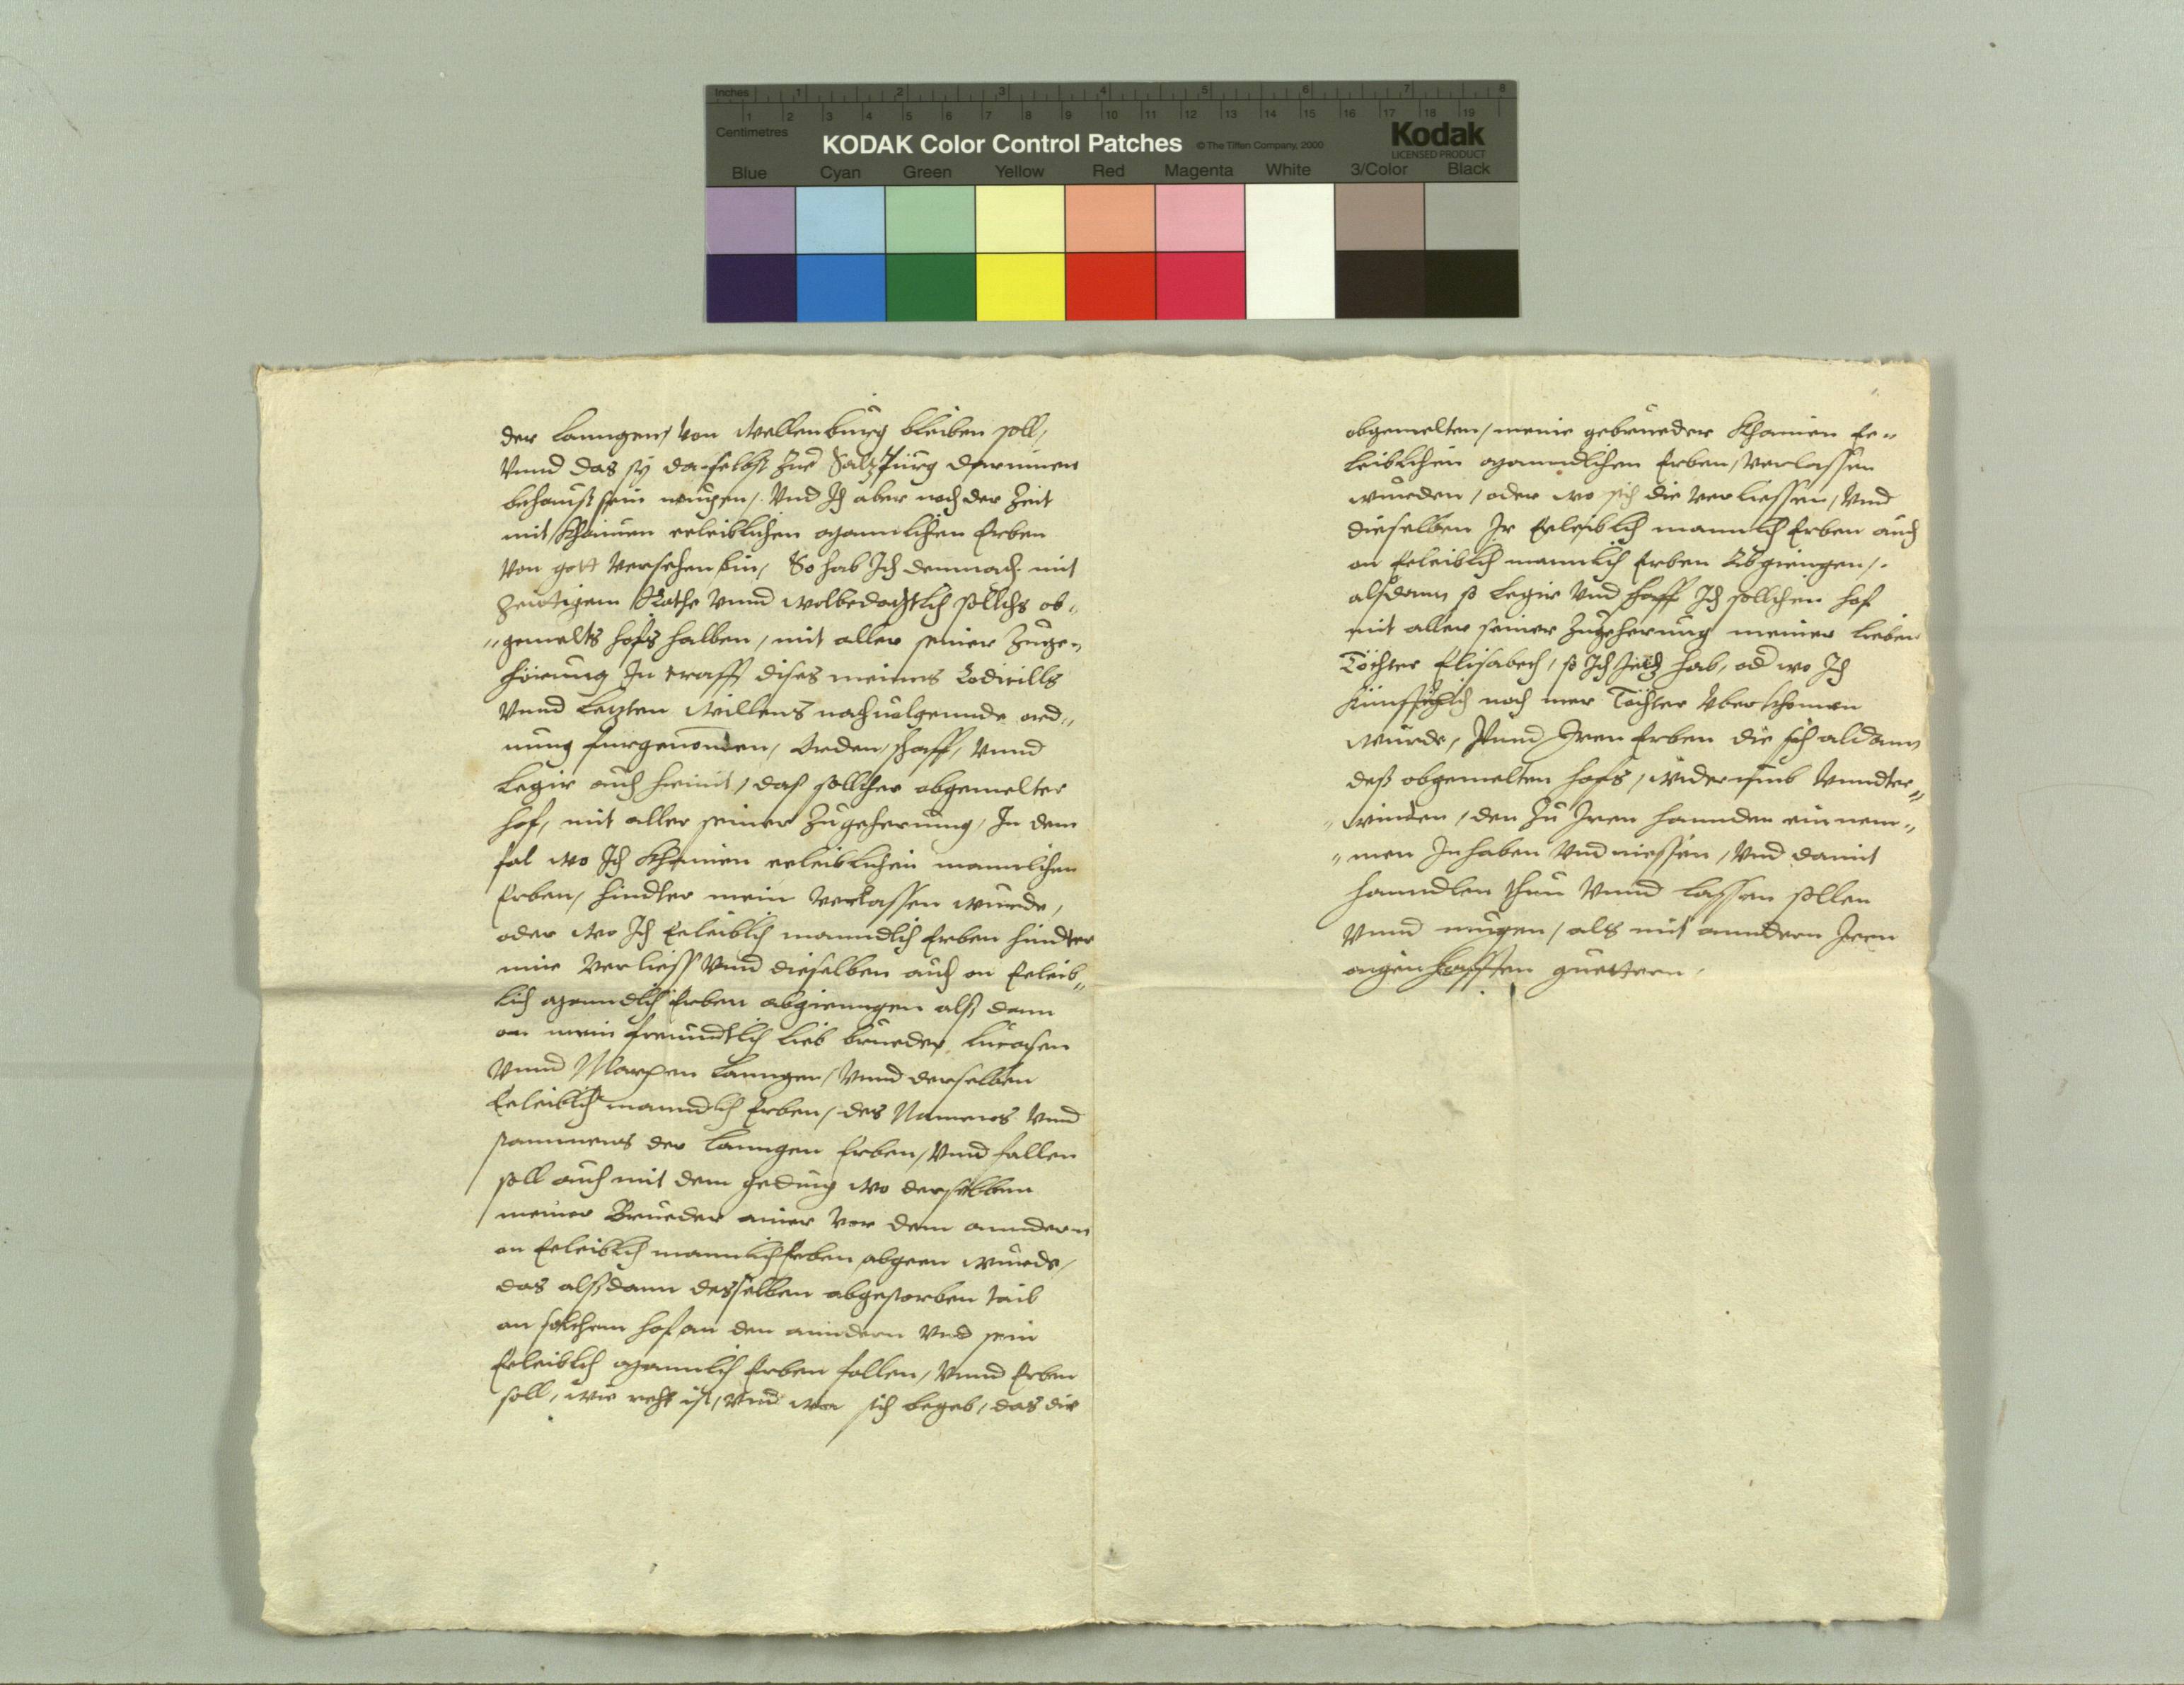 Inches 1 2 3 4 5 6 7 8
Centimetres 1 2 3 4 5 6 7 8 9 10 11 12 13 14 15 16 17 18 19
KODAK Color Control Patches © The Tiffen Company, 2000 Kodak
LICENSED PRODUCT
Blue Cyan Green Yellow Red Magenta White 3/Color Black
der Lanngen, von Wellenburg bleiben soll,
Vnnd das sy daselbst zue Saltzburg darinnen
behaust sein mugen, Vnd Ich aber noch der Zeit
mit khainen eeleiblichen manlichen Erben
von gott versehen bin, So hab Ich demnach mit
zeittigem Rathe vnnd wolbedachtlich sollichs ob„
„gemelts hofs halben, mit aller seiner Zuge„
hörung In crafft dises meines Codicills
vnnd letzten willens nachuolgennde ord„
nung furgenomen, Orden, schaff, vnnd
Legir auch hiemit, das sollicher obgemelter
hof, mit aller seiner Zugeherung, In dem
fal wo Ich khainen eeleiblichen mannlichen
Erben, hindter mein verlassen wurde,
oder wo Ich Eeleiblich manndlich Erben hindter
mir verliess vnnd dieselben auch on Eeleib„
lich manndlich Erben abgienngen alss dann
an mein freundtlich lieb brueder Lucasen
vnnd Marxen Lanngen, vnnd derselben
Eeleiblich manndlich Erben, des Namens vnnd
stammens der Lanngen Erben, vnnd fallen
soll auch mit dem geding wo derselben
meiner Brueder ainer vor dem anndern
on Eeleiblich mannlich Erben abgeen wurde,
das alssdann desselben abgestorben tail
an solchem hof an den anndern vnd sein
Eeleiblich mannlich Erben fallen, vnnd Erben
soll, wie recht ist, vnd wa sich begeb, das die
obgemelten, meine gebrueder khainen Ee„
leiblichen manndlichen Erben, verlassen
wurden, oder wo sich die verliessen, vnd
dieselben Ir Eeleiblich mannlich Erben auch
on Eeleiblich mannlich Erben Abgiengen,
alssdann so Legir vnd schaff Ich sollichen hof
mit aller seiner Zugeherung meiner lieben
Tochter Elisabeth, so Ich Jetz hab, od wo Ich
künfftiglich noch mer Tochter vberkhomen
wurde, Vnnd Iren Erben die sich aldann
dess obgemelten hofs, widerumb vnndter„
„winden, den zu Iren hannden einnem„
„men Inhaben vnd niessen, vnd damit
hanndlen thun vnnd lassen sollen
vnnd mugen, als mit anndern Iren
aigenhafften guettern,